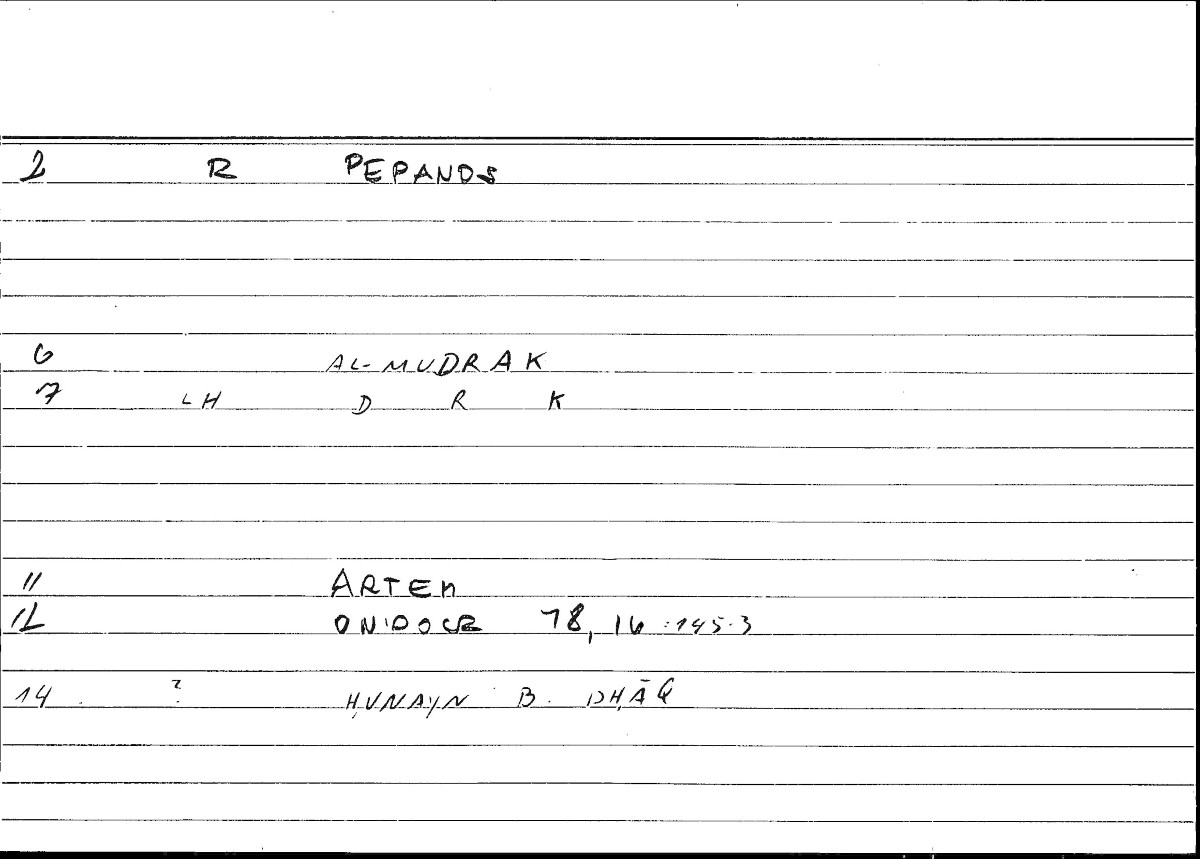 2 R PEPANDS
6 AL-MUDRAK
7 LH D R K
11 ARTEM
12 78, 16 :145.3
14 ? ḤUNAYN B. DHĀQ